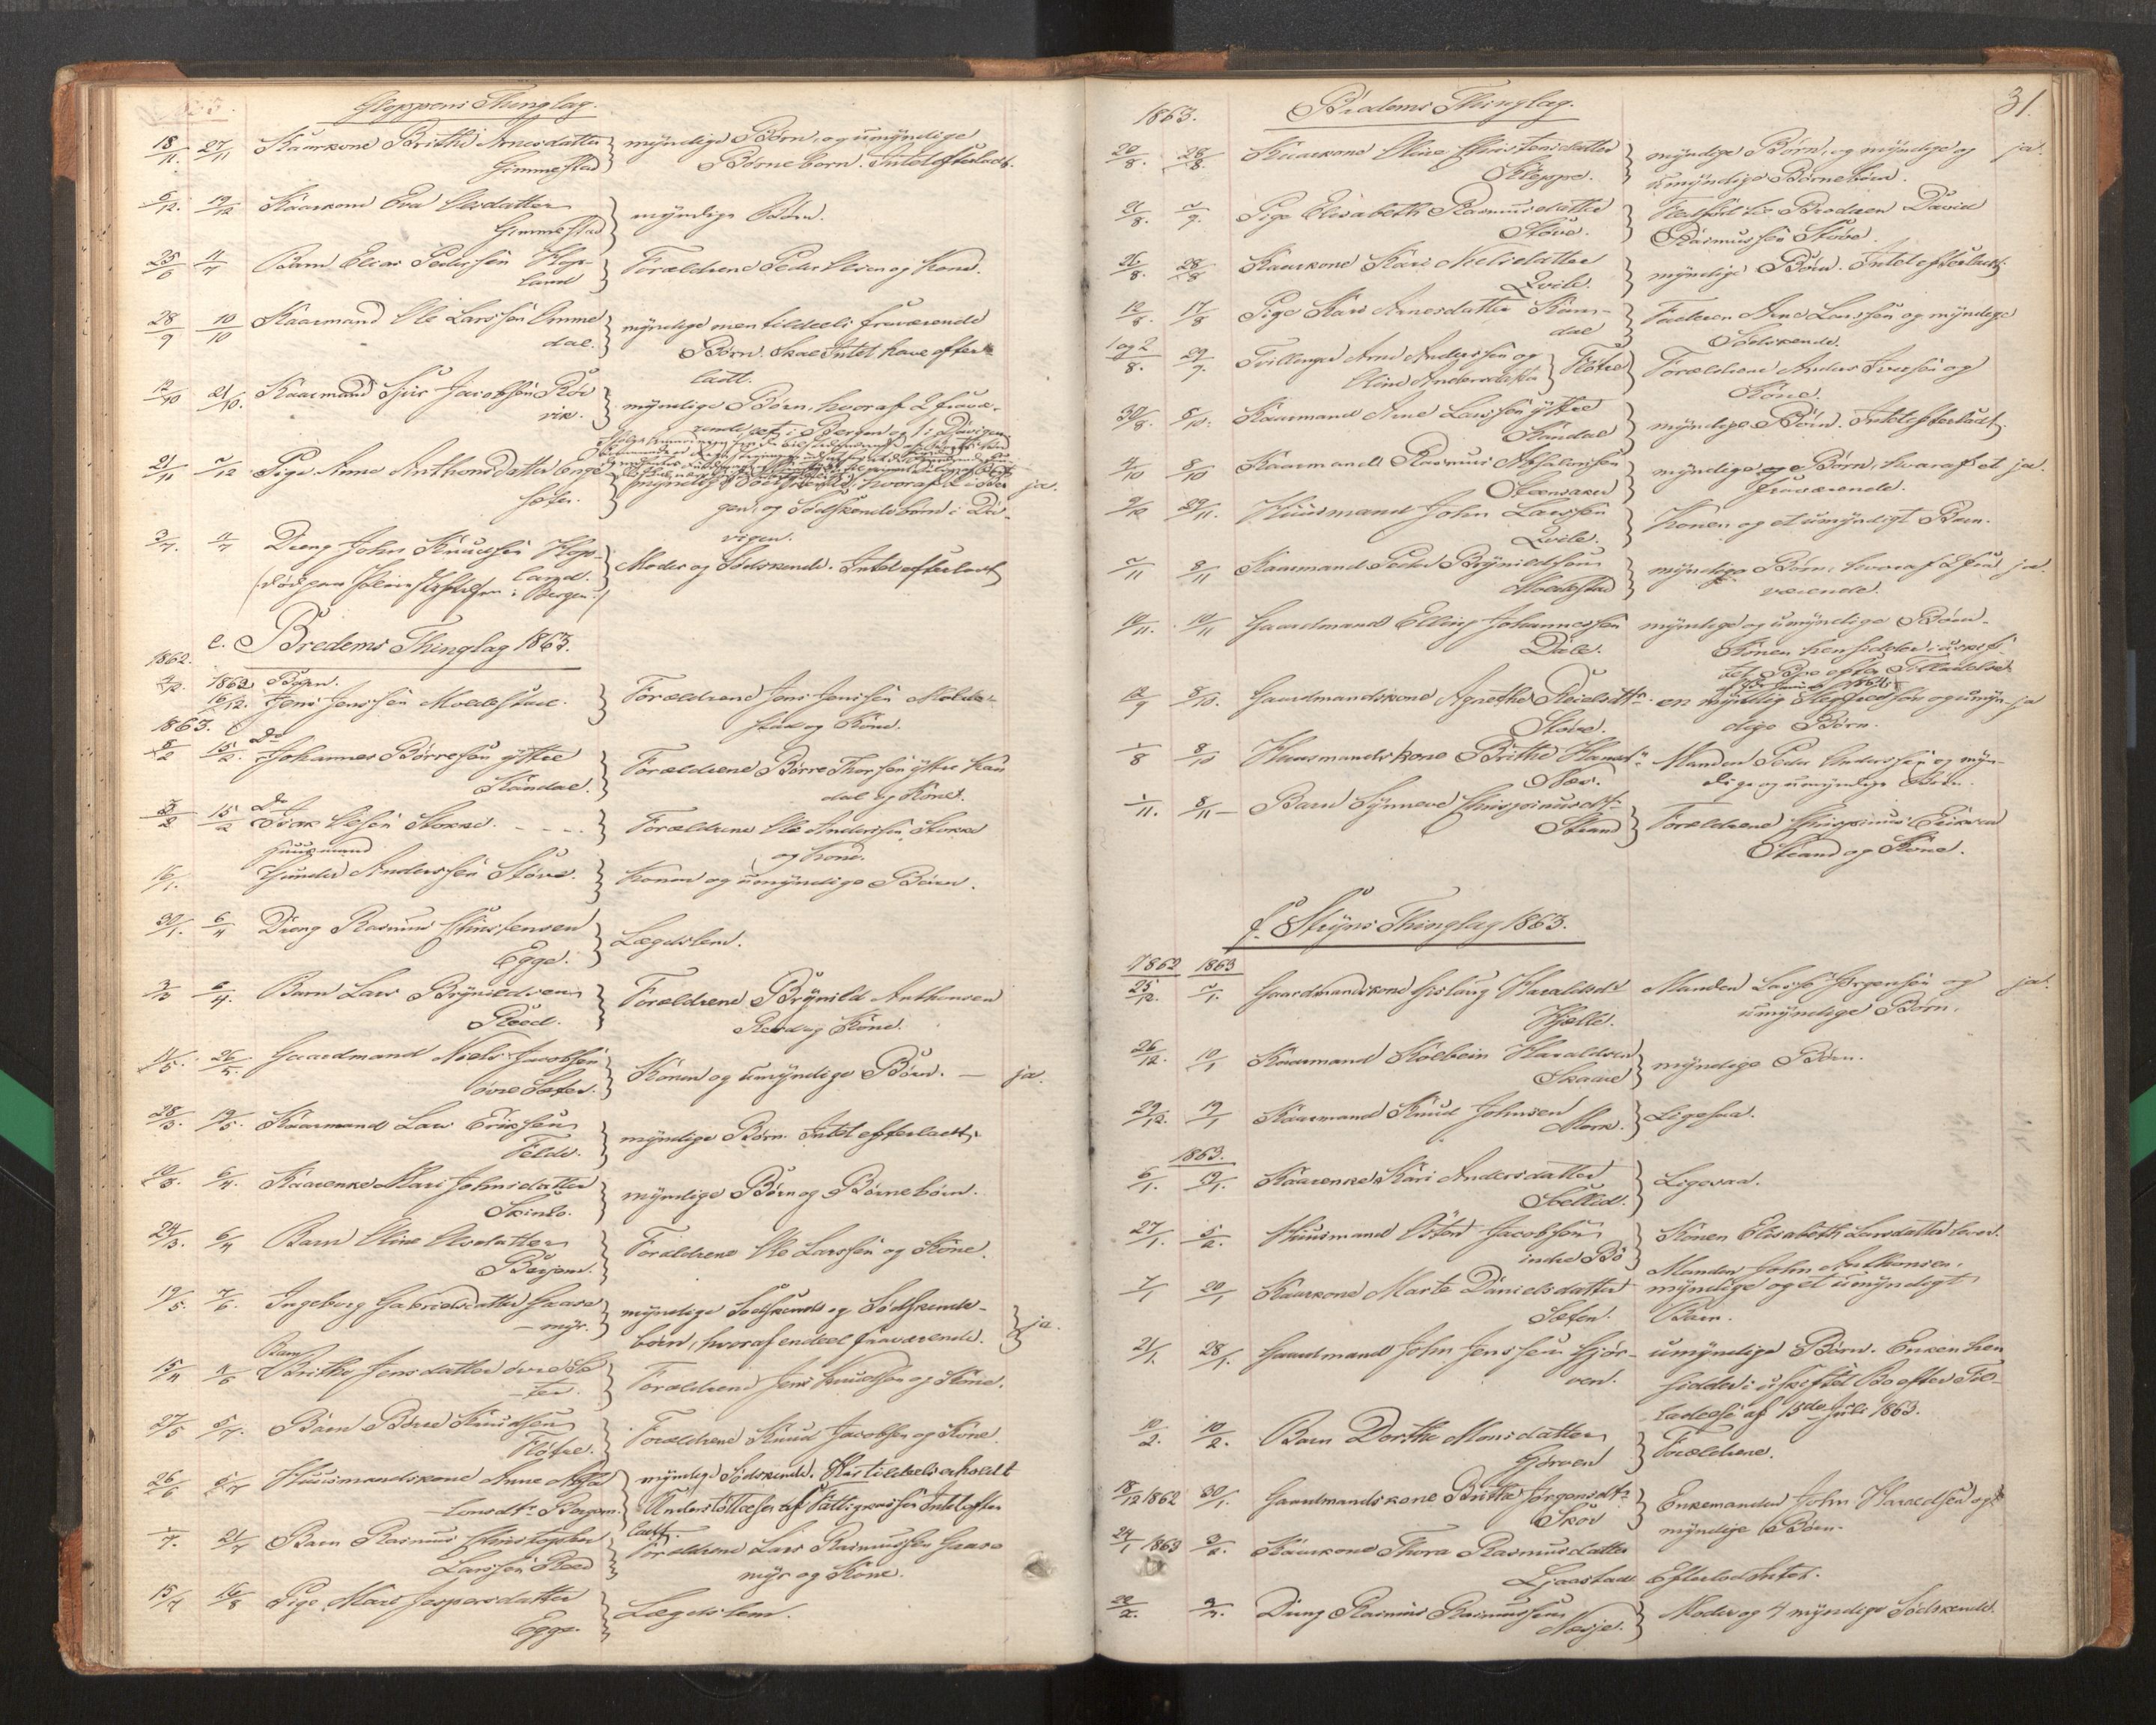 Gloppens Thinglag.
18/11. 27/11 Kaarkone Brithe Arnesdatter myndige Børn, og umyndige
Gimmestad Børnebørn. Intet efterladt.
6/12. 19/12 Kaarkone Eva Olesdatter
Gimmestad myndige Børn.
25/6 11/7 Barn Elias Pedersen Hop-
land Forældrene Peder Olsen og Kone.
28/9 10/10 Kaarmand Ole Larssen Omme
dal. myndige men tildeels fraværende
Børn. Skal Intet have efter-
ladt.
12/10 21/10. Kaarmand Sjur Jacobsen Røs
vik. myndige Børn, hvoraf 2 fravæ-
rende i Bergen og 1 i Davigen
21/11 /12 Pige Anne Anthonsdatter Enge
sæter. hvoraf 2 i Ber ja.
gen, og Sødskendebørn i Da-
vigen.
3/7. 11/7 Dreng John Knudsen Hop-
land. Moder og Sødskende. Intet efterladt
(død paa i Bergen.)
e. Bredems Thinglag 1863.
1862.
1862 Barn.
16/12. Jens Jenssen Moldestad. Forældrene Jens Jenssen Molde-
stad og Kone.
1863.
8/2 15/2. Do Johannes Børresen yttre
Kandal. Forældrene Børre Thorsen yttre Kan
dal og Kone.
15/2 Do Isak Olsen Stokke. Forældrene Ole Anderssen Stokke
og Kone.
Huusmand
16/1. Gunder Anderssen Støve. Konen og umyndige Børn.
30/1. 6/4 Dreng Rasmus Christensen
Egge. Lægdslem.
6/4. Barn Lars Brynildsen
Reed. Forældrene Brynild Anthonsen
Reed og Kone.
11/5. 26/5. Gaardmand Niels Jacobsen
øvre Sæter. Konen og umyndige Børn. — ja.
28/3. 19/5. Kaarmand Lars Eriksen
Felde. myndige Børn. Intet efterladt.
10/3. 6/4. Kaarenke Mari Johnsdatter
Skinlo. myndige Børn og Børnebørn.
24/3. 6/4 Barn Oline Olesdatter
Bergem. Forældrene Ole Larssen og Kone.
19/5. 7/6. Ingeborg Gabrielsdatter Gaase
-myr. myndige Sødskende og Sødskende-
børn, hvoraf endeel fraværende. ja.
Barn
15/4 Brithe Jensdatter øvre Sæ
-ter. Forældrene Jens Knudsen og Kone.
27/5 5/7. Barn Børre Knudsen
Fløtre. Forældrene Knud Jacobsen og Kone.
26/6 5/7 Huusmandskone Anne Absa
-lonsdr Bergem. myndige Sødskende. Har tildeels erholdt
Understøttelse af Fattigkassen Intet efter
ladt.
/7. 21/7 Barn Rasmus Christopher
Larssen Reed Forældrene Lars Rasmussen Gaase
myr og Kone.
15/7 16/8 Pige Mari Jespersdatter
Egge. Lægdslem.
1863. Bredems Thinglag. 31.
20/8. 28/8. Kaarkone Oline Christensdatter
Kleppe. myndige Børn, og myndige og ja.
umyndige Børnebørn.
21/8. /9. Pige Elisabeth Rasmusdatter
Støve. Broderen David
Rasmussen Støve.
26/8. 28/8 Kaarkone Kari Nielsdatter
Qvile. myndige Børn. Intet efterladt.
12/8. 17/8 Pige Kari Arnesdatter Kan-
dal Faderen Arne Larssen og myndige
Sødskende.
1 og 2/8. 29/7. Tvillinger Arne Anderssen og
Oline Andersdatter Fløtre Forældrene Anders Iversen og
Kone.
30/8. 8/10. Kaarmand Arne Larssen yttre
Kandal myndige Børn. Intet efterladt.
4/10 8/10 Kaarmand Rasmus Absalonsen
Steensaker myndige Børn, hvoraf et ja.
fraværende.
29/11. Huusmand John Larssen
Qvile. Konen og et umyndigt Barn.
/11 8/11 Kaarmand Peder Brynildsen
Moldestad myndige Børn, hvoraf 2 fra ja.
værende.
10/11 Gaardmand Elling Johannessen
Dale. myndige og umyndige Børn.
Konen hensidder i uskif-
tet Bo efter Tilladelse
12/9 8/10. Gaardmandskone Agnethe
Støve. en myndig og umyn- ja
dige Børn.
/8 8/10 Huusmandskone Brithe Hansdr
Næs. Manden Peder Anderssen og myn-
dige og umyndige Børn.
/11. 8/11 Barn Synneve
Strand Forældrene Eriksen
Strand og Kone.
f. Stryns Thinglag 1863.
1862 1863
25/12. /1. Gaardmandskone Gislaug Haraldsdr
Hjelle. Manden Lasse Jørgensen og ja.
umyndige Børn.
26/12. 10/1 Kaarmand Kolbein Haraldsen
Skaare myndige Børn.
29/12. 19/1 Kaarmand Knud Johnsen
Mork. Ligesaa.
1863.
6/1. 19/1. Kaarenke Kari Andersdatter
Ligesaa.
27/1. 5/2. Huusmand Østen Jacobsen
indre Bø Konen Elisabeth Larsdatter
Manden John Anthonsen.
7/1 20/1 Kaarkone Marte Danielsdatter
Sæten. myndige og et umyndigt
Barn.
21/1. 28/1. Gaardmand John Jenssen Gjør-
ven. umyndige Børn. Enken hen
sidder i uskiftet Bo efter Til-
ladelse af 13de Juli 1863.
10/2. 10/2. Barn Dorthe Monsdatter
Gjørven Forældrene.
18/12 1862 30/1. Gaardmandskone Brithe Jørgensdr
Skov Enkemanden John Haraldsen og
myndige Børn.
24/1 1863 3/2. Kaarkone Thora Rasmusdatter
Ljaastad Efterlod Intet.
22/2. Dreng Rasmus Rasmussen
Nesje. Moder og 4 myndige Sødskende.